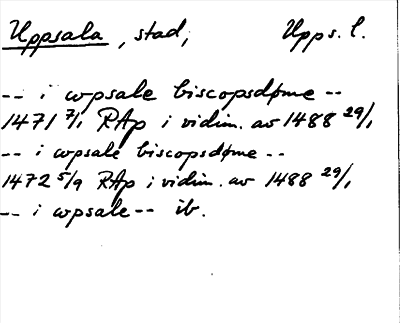 Uppsala, stad, Upps. l.
-- i wpsale biscopsdøme --
1471 7/1 RAp i vidim. av 1488 29/1
-- i wpsale biscopsdøme --
1472 5/9 RAp i vidim. av 1488 29/1
-- i wpsale -- ib.